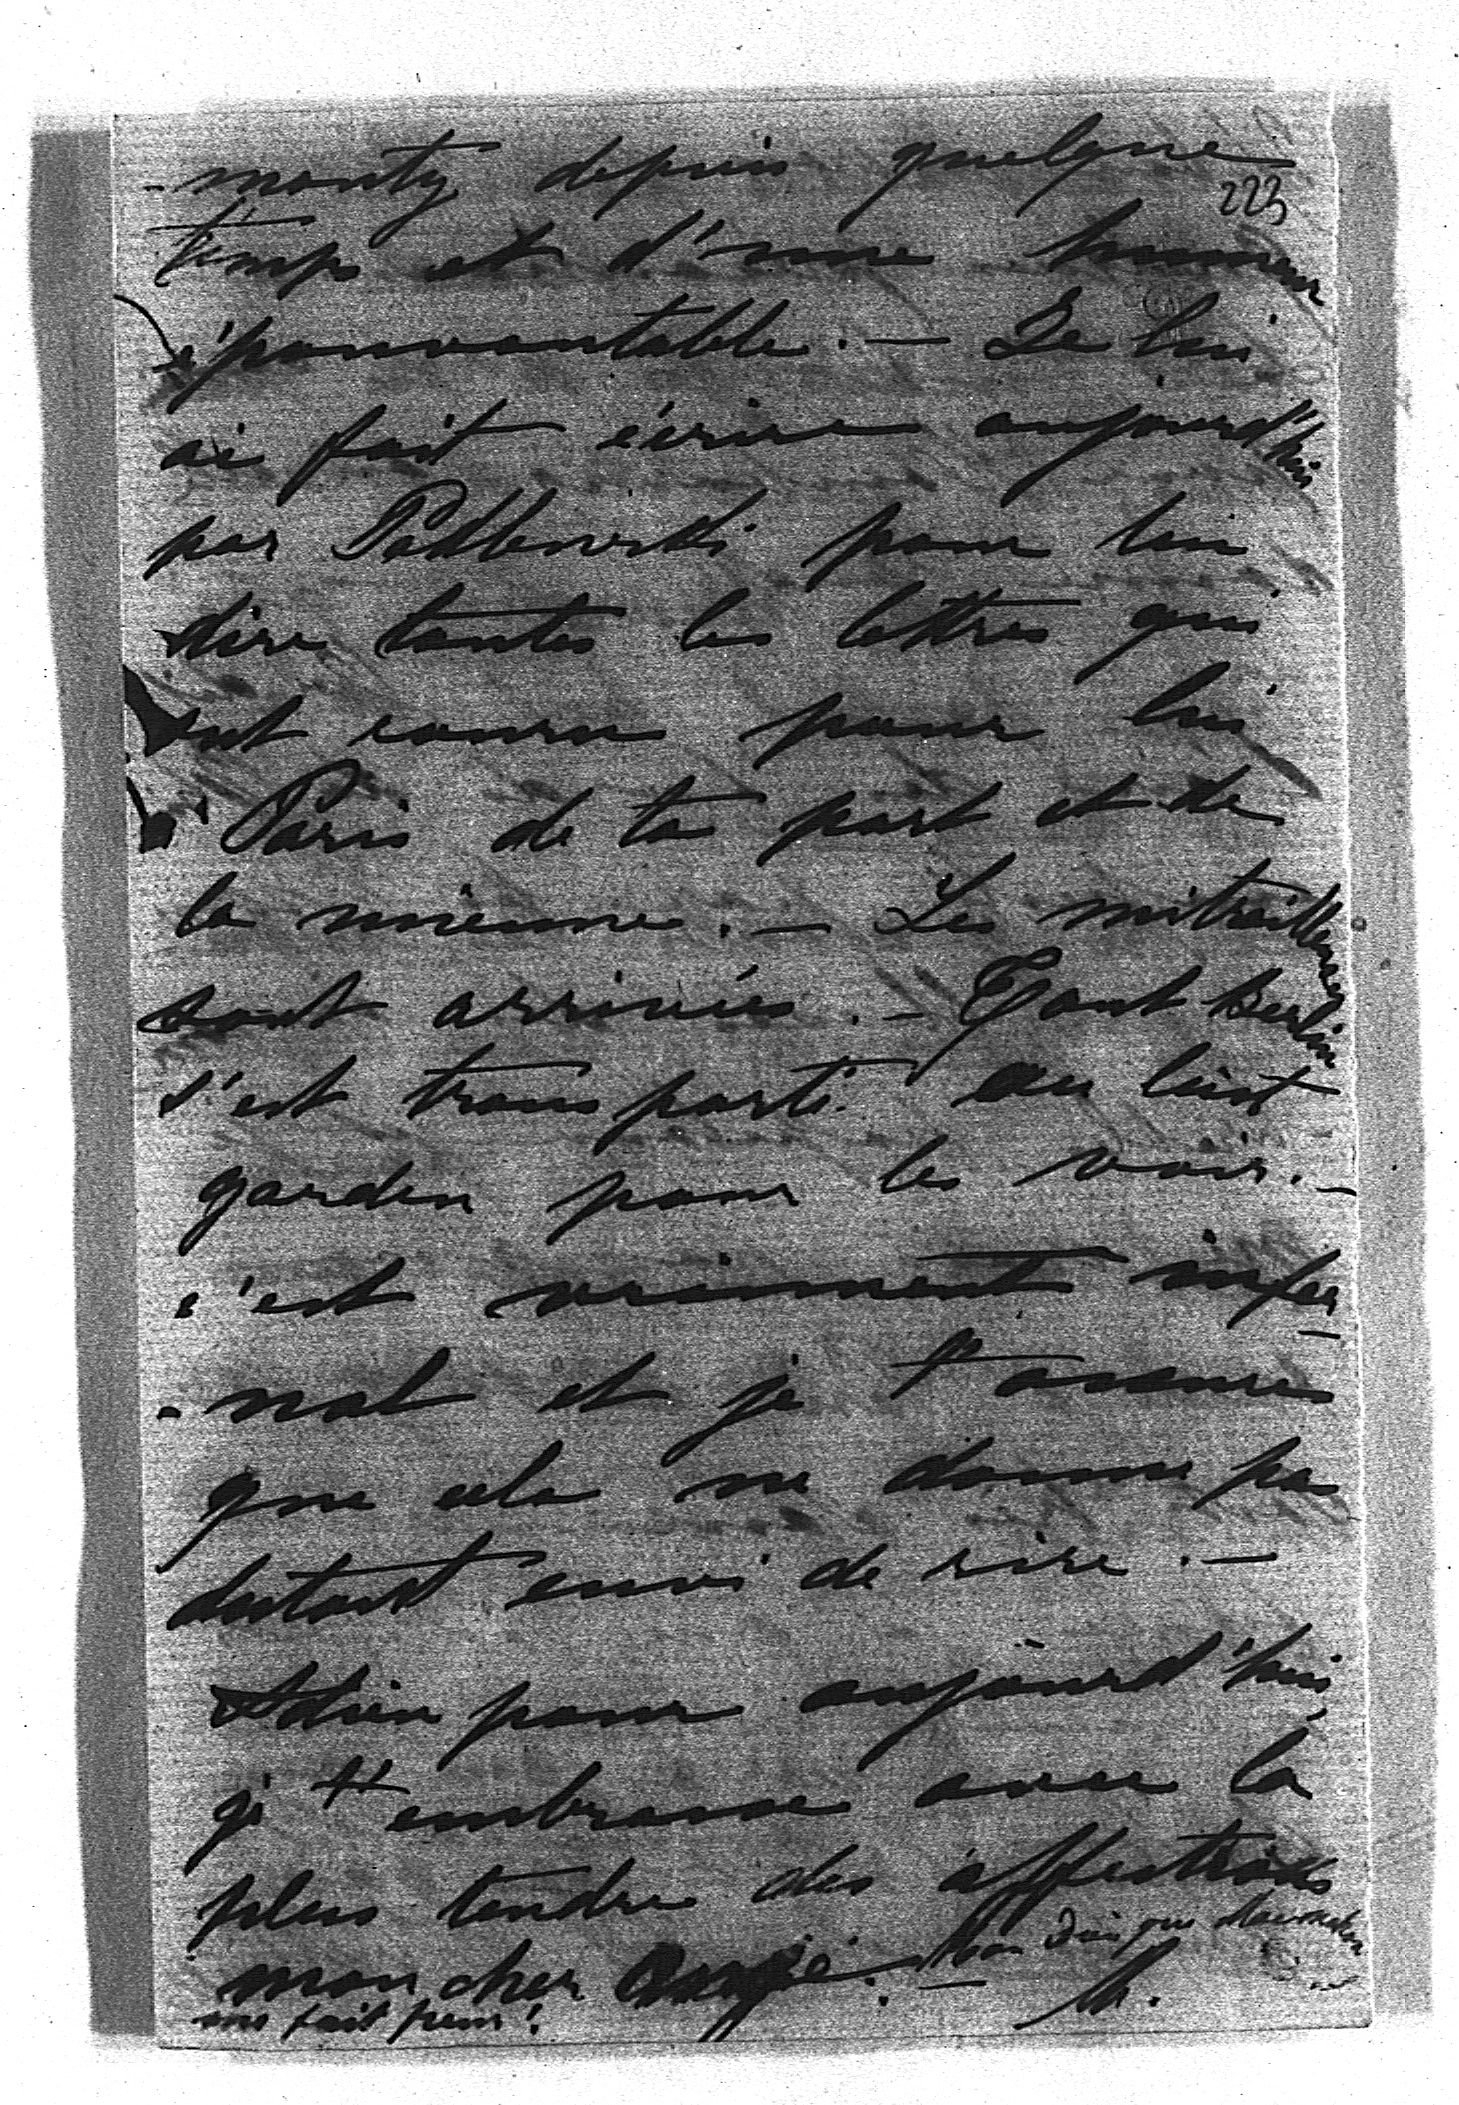 - monty depuis quelque
223
temps et d'une humeur
épouvantable. — Je lui
ai fait écrire aujourd'hui
par Podbowski pour lui
dire toutes les lettres qui
ont couru pour lui
à Paris de ta part et de
la mienne. — Les mitrailleuses
sont arrivées. — Tout Berlin
s'est transporté au lust
garden pour les voir. —
c'est vraiment infer
- nal et je t'assure
que cela ne donne pas
du tout envi de rire. —
Adieu pour aujourd'hui
je t'embrasse avec la
plus tendre des affections
mon cher ange. — Mon Dieu que
me fait peur! M.